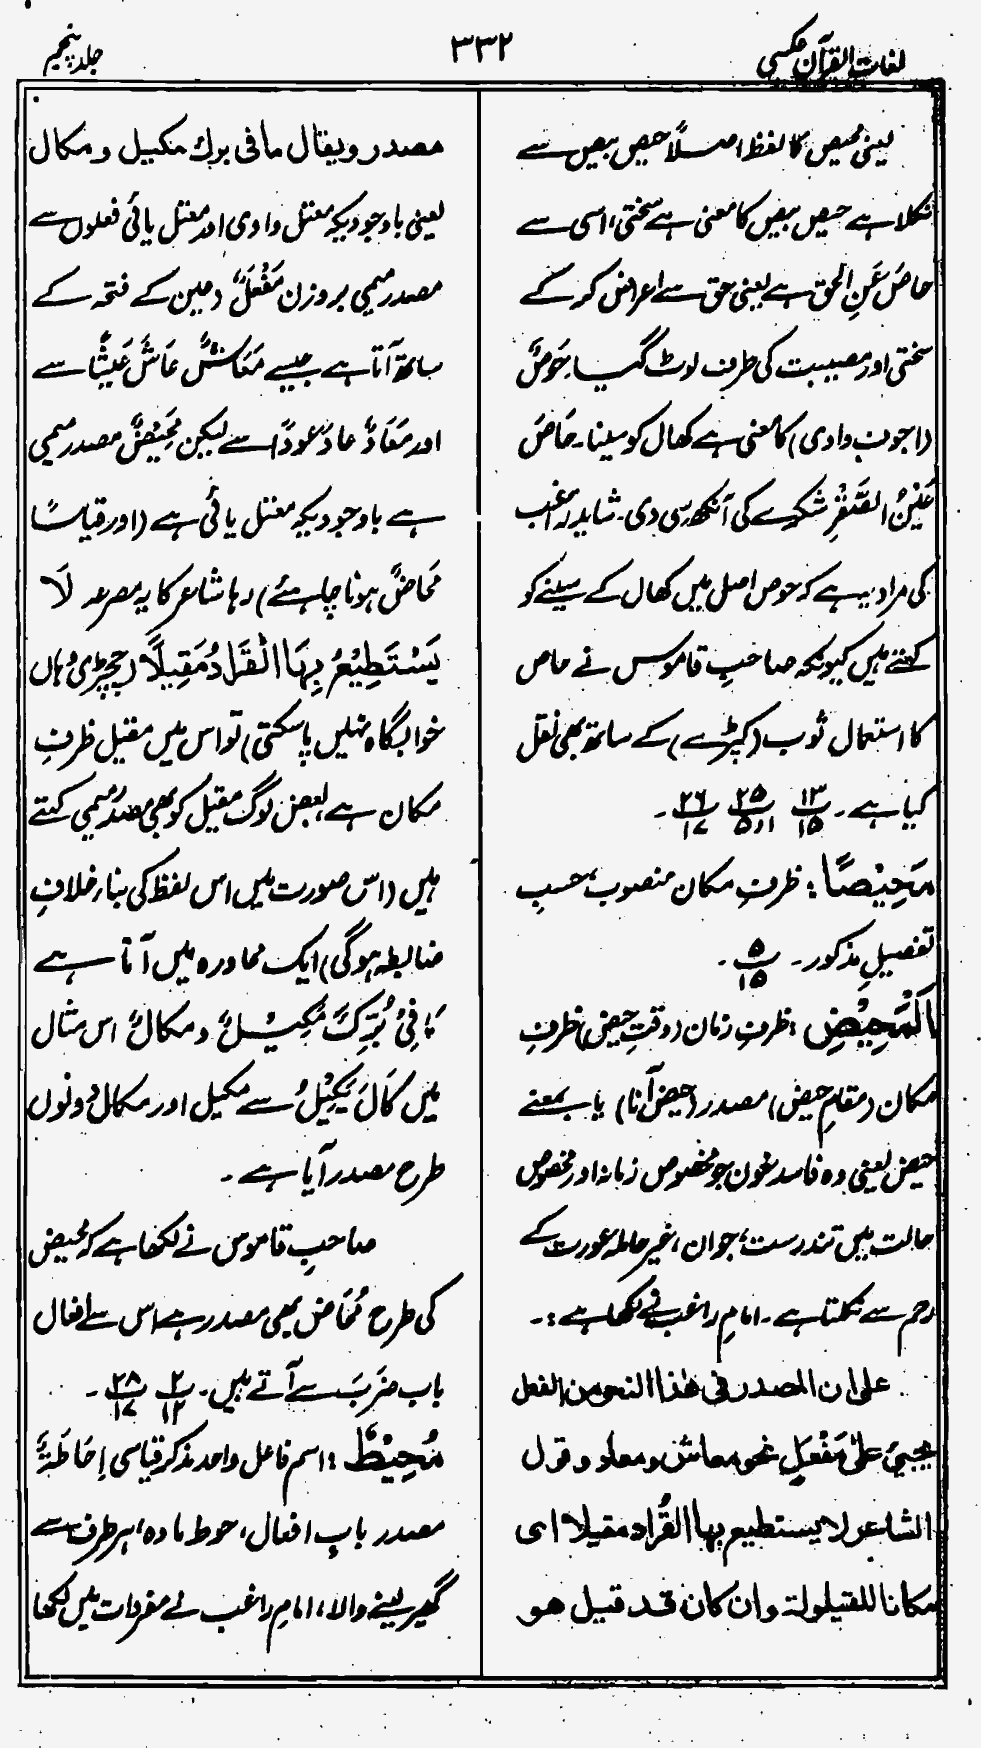 لغات القرآن عکسی
۳۳۲
جلد پنجم
یعنی محیص کا لفظ اصلاً حیص بیص سے
نکلا ہے حیص بیص کا معنی ہے سختی، اسی سے
حَاصَ عَنِ الحق ہے یعنی حق سے اعراض کر کے
سختی اور مصیبت کی طرف لوٹ گیا۔ حَوْصٌ
(اجوف وادی) کا معنی ہے کھال کو سینا۔ حَاصَ
عَيْنُ الصَّقْرِ شکرے کی آنکھ سی دی۔ شاید راغب
کی مراد یہ ہے کہ حوص اصل میں کھال کے سینے کو
کہتے ہیں کیونکہ صاحبِ قاموس نے حاص
کا استعمال ثوب (کپڑے) کے ساتھ بھی نقل
کیا ہے۔ ۱۳/۱۵ ۲۵/۵،۱ ۲۶/۱۷۔
مَحِيْصًا: ظرفِ مکان منصوب، حسبِ
تفصیلِ مذکور۔ ۵/۱۵۔
اَلْمَحِيْضِ: ظرفِ زمان (وقتِ حیض) ظرفِ
مکان (مقامِ حیض) مصدر (حیض آنا) یا بمعنے
حیض یعنی وہ فاسد خون جو مخصوص زمانہ اور مخصوص
حالت میں تندرست، جوان، غیر حاملہ عورت کے
رحم سے نکلتا ہے۔ امامِ راغب نے لکھا ہے:۔
علی ان المصدر فی ھٰذا النحو من الفعل
یجیئ علیٰ مَفْعَلٍ نحو معاش و معاد و قول
الشاعر لا یستطیع بھا القُراد مقیلا ای
مکانا للقیلولۃ وان کان قد قیل ھو
مصدر ویقال ما فی برك مکیل و مکال
یعنی باوجودیکہ معتل وادی اور معتل یائی فعلوں سے
مصدر میمی بروزن مَفْعَلٌ (عین کے فتحہ کے
ساتھ آتا ہے جیسے مَعَاشٌ عَاشَ عَیْشًا سے
اور مَعَادٌ عادَ عودًا سے لیکن مَحِیْضٌ مصدر میمی
ہے باوجودیکہ معتل یائی ہے (اور قیاسًا
مَحَاضٌ ہونا چاہئے) رہا شاعر کا یہ مصرعہ لَا
یَسْتَطِیْعُ بِهَا الْقَرَادُ مَقِیْلًا (چچڑی وہاں
خوابگاہ نہیں پاسکتی) تو اس میں مقیل ظرفِ
مکان ہے، بعض لوگ مقیل کو بھی مصدر میمی کہتے
ہیں (اس صورت میں اس لفظ کی بنا، خلافِ
ضابطہ ہوگی) ایک محاورہ میں آتا ہے
مَا فِیْ بُرِّكَ مَکِیْلٌ و مکالٌ اس مثال
میں کَالَ یَکِیْلُ سے مکیل اور مکال دونوں
طرح مصدر آیا ہے۔
صاحبِ قاموس نے لکھا ہے کہ محیض
کی طرح مَحَاض بھی مصدر ہے اس سے افعال
باب ضَرَبَ سے آتے ہیں۔ ۲/۱۲ ۲۸/۱۷۔
مُحِيْطٌ: اسم فاعل واحد مذکر قیاسی اِحَاطَۃٌ
مصدر بابِ افعال، حوط مادہ، ہر طرف سے
گھیر لینے والا، امامِ راغب نے مفردات میں لکھا